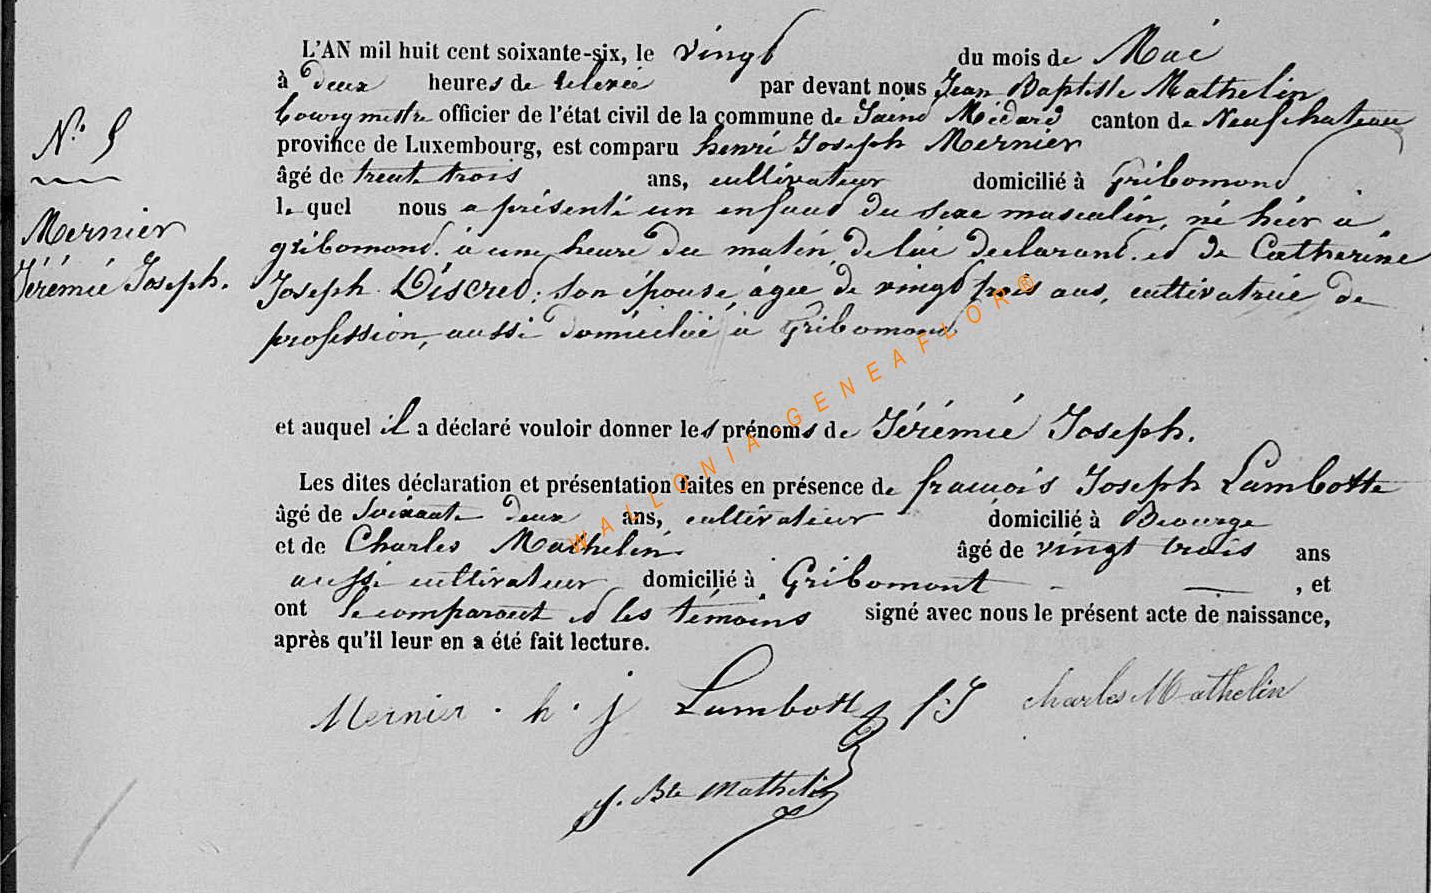 L'AN mil huit cent soixante-six, le vingt du mois de Mai
à deux heures de relevée par devant nous Jean Baptiste Mathelin
bourgmestre officier de l'état civil de la commune de Saint Médard canton de Neufchateau
province de Luxembourg, est comparu henri Joseph Mernier
N.° 5
âgé de trente trois ans, cultivateur domicilié à Gribomond
le quel nous a présenté un enfant du sexe masculin, né hier à
Mernier
gribomond à une heure du matin, de lui déclarant et de Catherine
Jérémie Joseph.
Joseph Discred, son épouse, âgée de vingt trois ans, cultivatrice de
profession, aussi domiciliée à Gribomond
et auquel il a déclaré vouloir donner les prénoms de Jérémie Joseph.
Les dites déclaration et présentation faites en présence de francois Joseph Lambotte
âgé de soixante deux ans, cultivateur domicilié à Biourge
et de Charles Mathelin âgé de vingt trois ans
aussi cultivateur domicilié à Gribomont , et
ont le comparant et les témoins signé avec nous le présent acte de naissance,
après qu'il leur en a été fait lecture.
Mernier . h . j Lambotte f.J Charles Mathelin
J. Bte Mathelin
WALLONIA-GENEAFLOR®